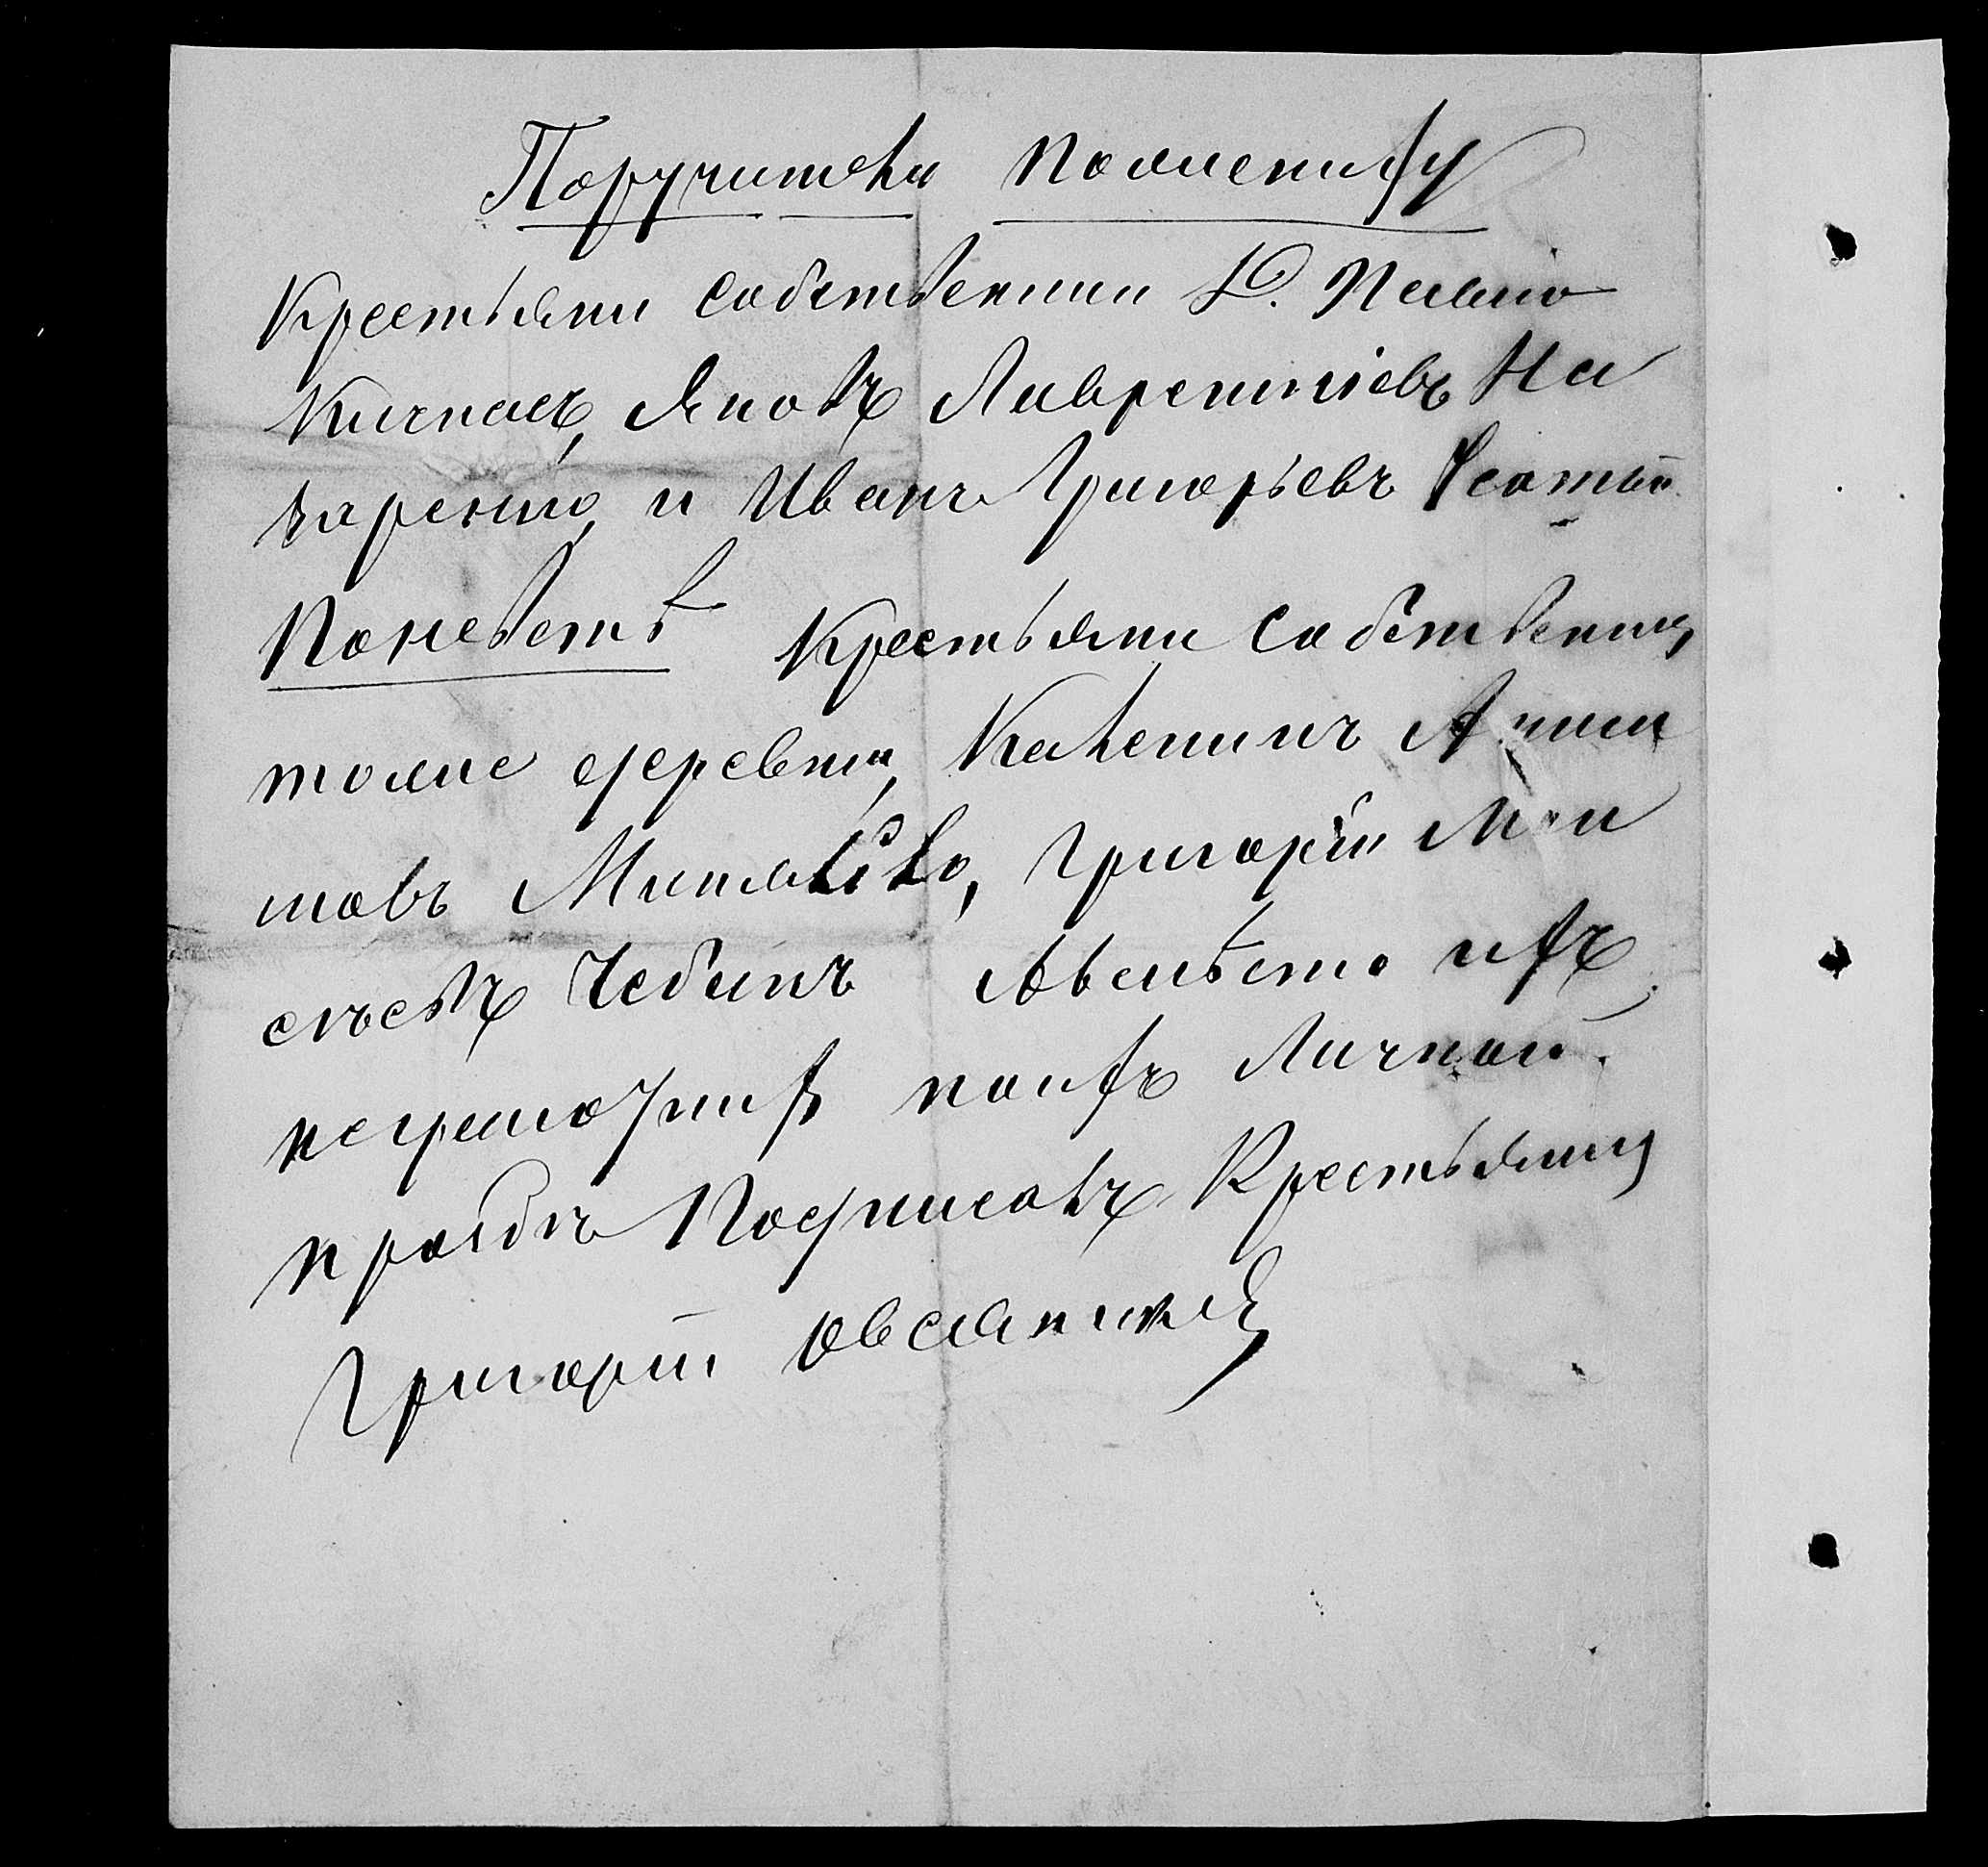 Поручители по жениху
Крестьяни собственики д. Ново
Яковъ Лаврентіевъ На
заренко, и Иванъ Григорьевъ Усатый.
По невестѣ Крестьяни собственики
тоже деревни, Каленикъ Анти
повъ Михайленко, Григорій Мои
сѣевъ Чебанъ Авместо ихъ
неграмотныхъ поихъ Личной
прозбѣ Подписалъ Крестьянинъ
Григорій Овсяниковъ